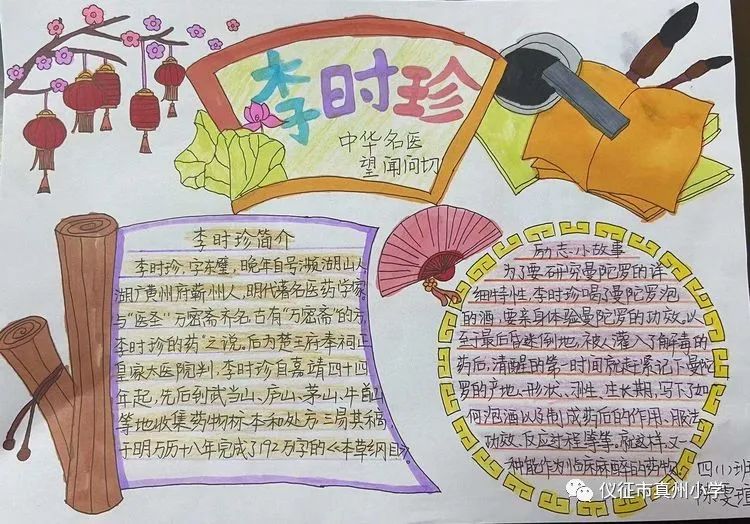 李时珍
中华名医
望闻问切
李时珍简介
李时珍,字东璧,晚年自号濒湖山人
湖广黄州府蕲州人,明代著名医药学家
与“医圣”万密斋齐名,古有“万密斋”的方
李时珍的药”之说。后为楚王府奉祠正
皇家太医院判,李时珍自嘉靖四十四
年起,先后到武当山、庐山、茅山、牛首山
等地收集药物标本和处方,三易其稿
于明万历十八年完成了192万字的《本草纲目》
励志小故事
为了要研究曼陀罗的详
细特性,李时珍喝了曼陀罗泡
的酒,要亲身体验曼陀罗的功效,以
至于最后昏迷倒地,被人灌入了解毒的
药后,清醒的第一时间就赶紧记下曼陀
罗的产地、形状、习性、生长期,写下了如
何泡酒以及制成药后的作用、服法、
功效、反应过程等等,就这样,又一
种能作为临床麻醉的药物
四(1)班
仪征市真州小学